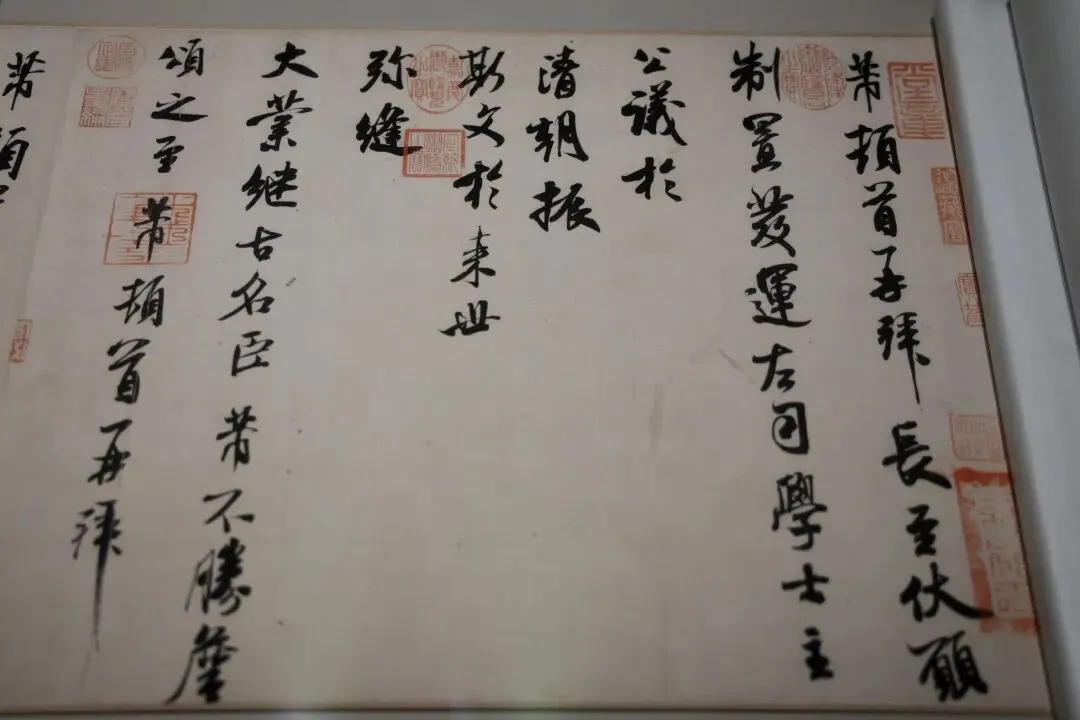 芾頓首再拜 長至伏願
制置發運左司學士主
公議於
清朝振
斯文於来世
弥縫
大業継古名臣 芾不勝
頌之至 芾頓首再拜
芾頓